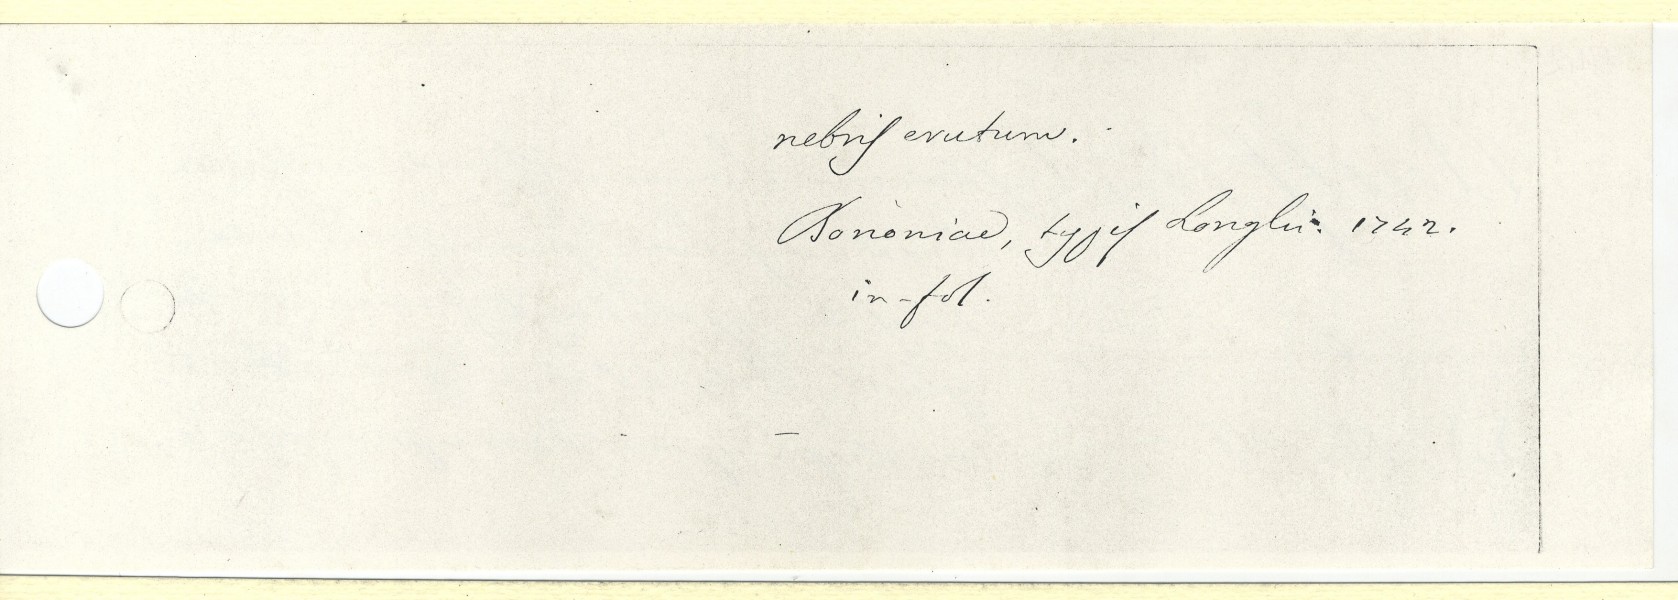 nebris erutum.
Bononiae, typis Longhi. 1742.
in-fol.